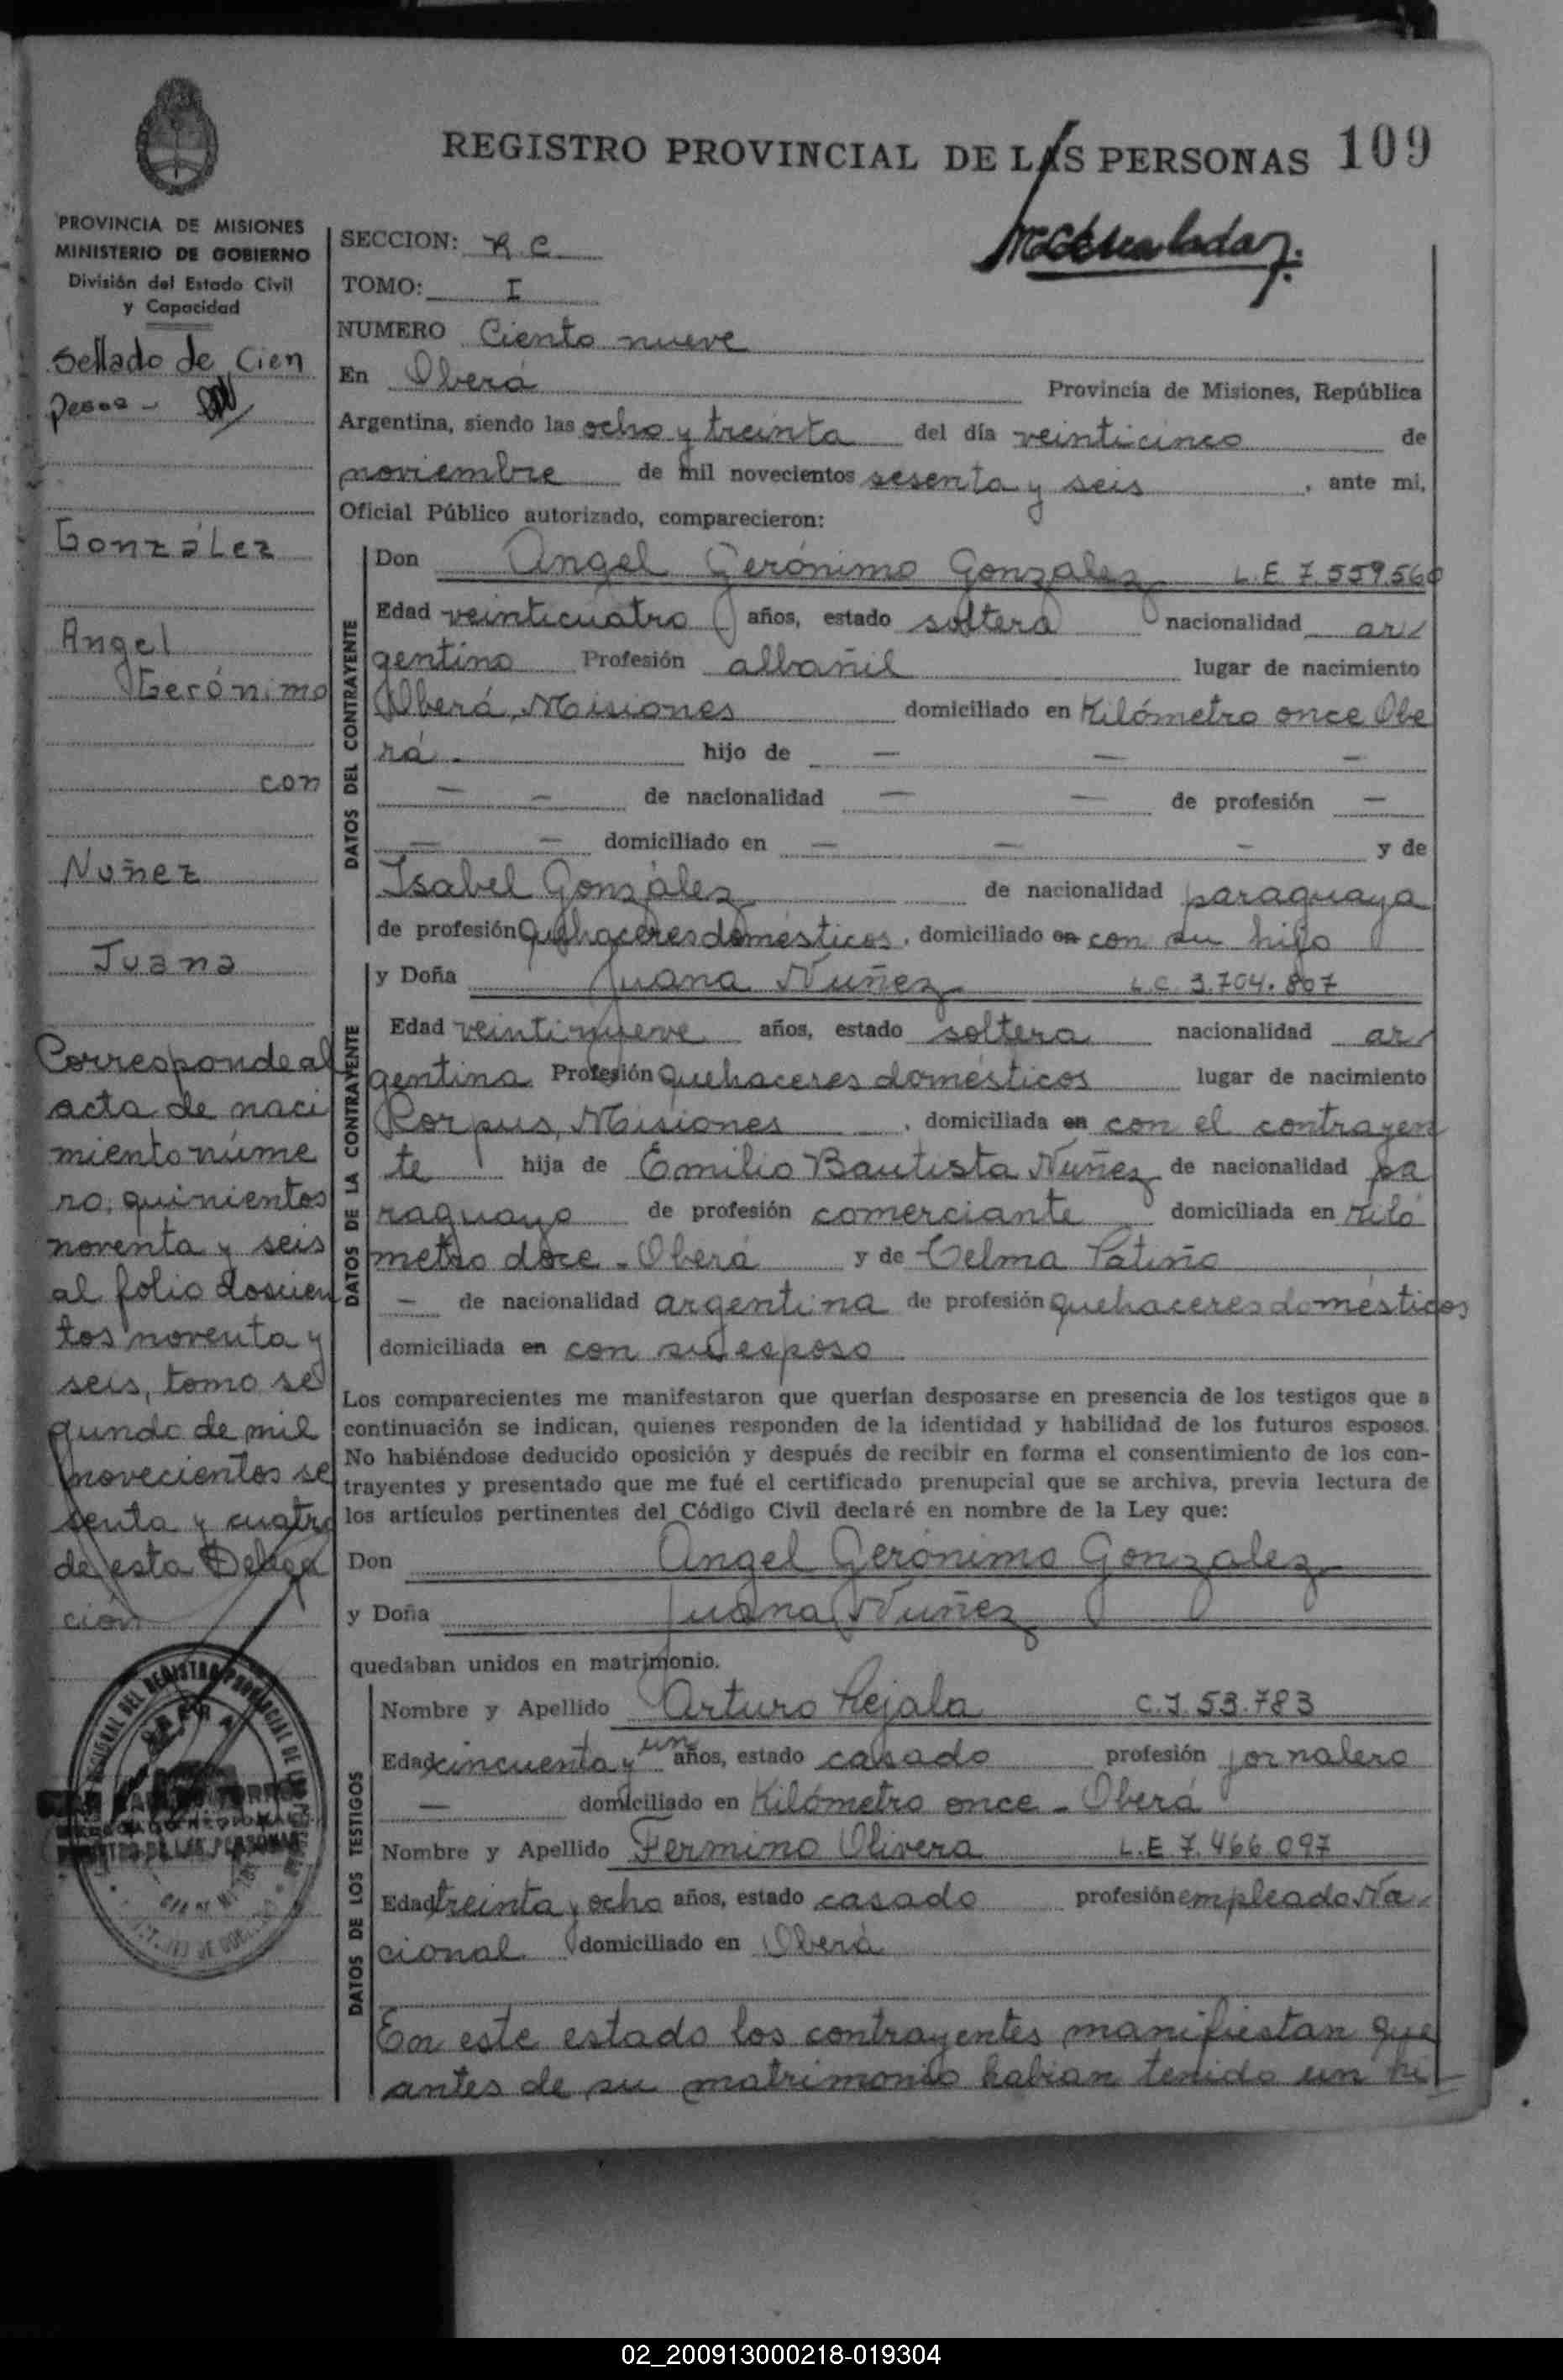 REGISTRO PROVINCIAL DE LAS PERSONAS 109
PROVINCIA DE MISIONES
MINISTERIO DE GOBIERNO
División del Estado Civil
y Capacidad
Sellado de Cien
pesos -
González
Angel
Gerónimo
con
Nuñez
Juana
Corresponde al
acta de naci
miento núme
ro, quinientos
noventa y seis
al folio doscien
tos noventa y
seis, tomo se
gundo de mil
novecientos se
senta y cuatro
de esta Delega
ción
SECCION: R C
TOMO: I
NUMERO Ciento nueve
En Oberá Provincia de Misiones, República
Argentina, siendo las ocho y treinta del día veinticinco de
noviembre de mil novecientos sesenta y seis, ante mi,
Oficial Público autorizado, comparecieron:
DATOS DEL CONTRAYENTE
Don Angel Gerónimo Gonzalez L.E 7.559.560
Edad veinticuatro años, estado soltero nacionalidad ar
gentino Profesión albañil lugar de nacimiento
Oberá, Misiones domiciliado en Kilómetro once Obe
rá - hijo de — — —
— — de nacionalidad — — de profesión —
— — domiciliado en — — — y de
Isabel González de nacionalidad paraguaya
de profesión Quehaceres domésticos, domiciliado en con su hijo
DATOS DE LA CONTRAYENTE
y Doña Juana Nuñez L.C. 3.704.807
Edad veintinueve años, estado soltera nacionalidad ar
gentina Profesión quehaceres domésticos lugar de nacimiento
Corpus, Misiones, domiciliada en con el contrayen
te hija de Emilio Bautista Nuñez de nacionalidad pa
raguayo de profesión comerciante domiciliada en Kiló
metro doce - Oberá y de Celma Patiño
— de nacionalidad argentina de profesión quehaceres domésticos
domiciliada en con su esposo
Los comparecientes me manifestaron que querían desposarse en presencia de los testigos que a
continuación se indican, quienes responden de la identidad y habilidad de los futuros esposos.
No habiéndose deducido oposición y después de recibir en forma el consentimiento de los con-
trayentes y presentado que me fué el certificado prenupcial que se archiva, previa lectura de
los artículos pertinentes del Código Civil declaré en nombre de la Ley que:
Don Angel Gerónimo Gonzalez
y Doña Juana Nuñez
quedaban unidos en matrimonio.
DATOS DE LOS TESTIGOS
Nombre y Apellido Arturo Rejala C.I. 53.783
Edad cincuenta y un años, estado casado profesión jornalero
— domiciliado en Kilómetro once - Oberá
Nombre y Apellido Fermino Olivera L.E 7.466.097
Edad treinta y ocho años, estado casado profesión empleado Na
cional domiciliado en Oberá
En este estado los contrayentes manifiestan que
antes de su matrimonio habian tenido un hi
02_200913000218-019304